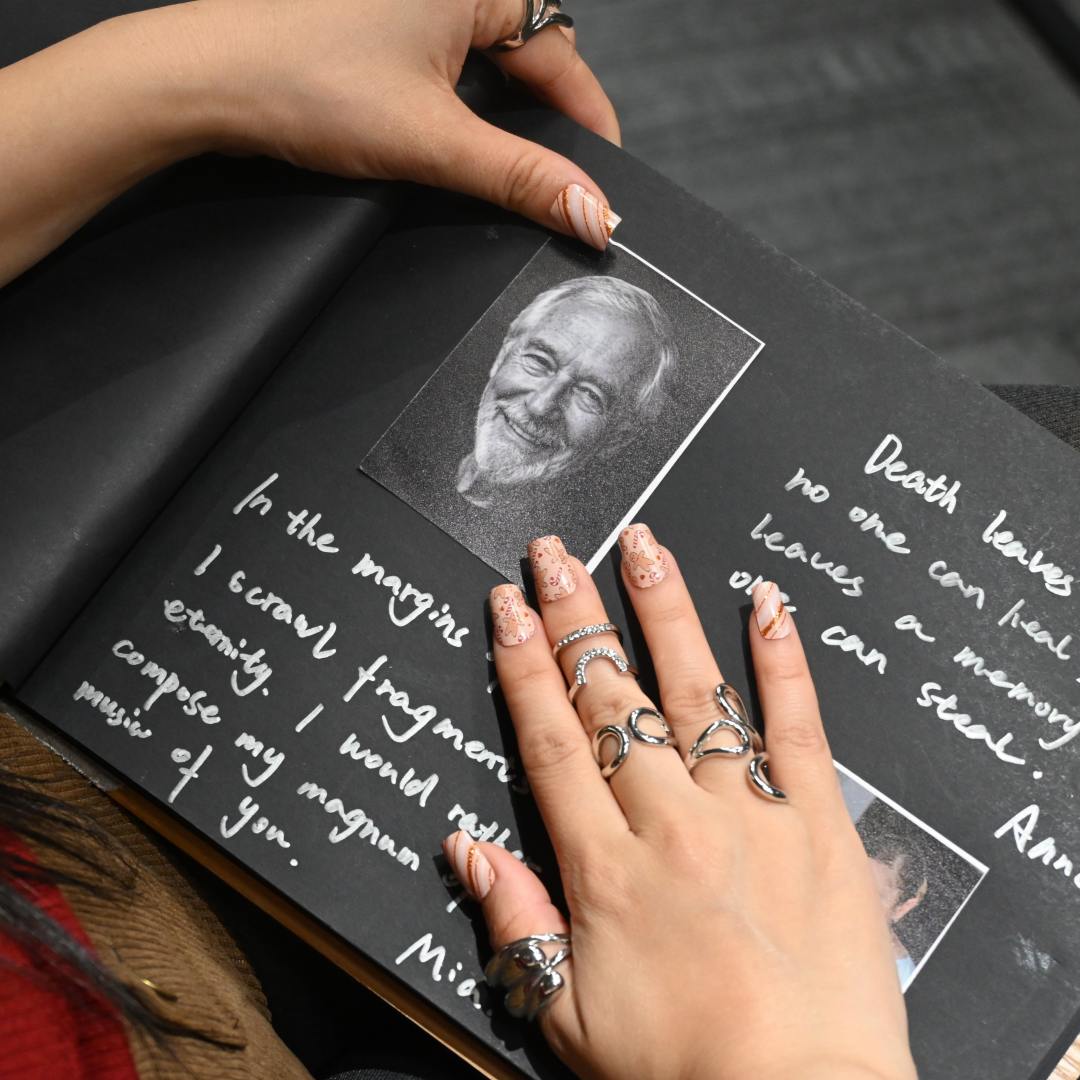 In the margins
I scrawl fragmen
eternity. I would rath
compose my magnum
music of you.
Mia
Death leaves
no one can heal,
leaves a memory
one can steal.
Anne